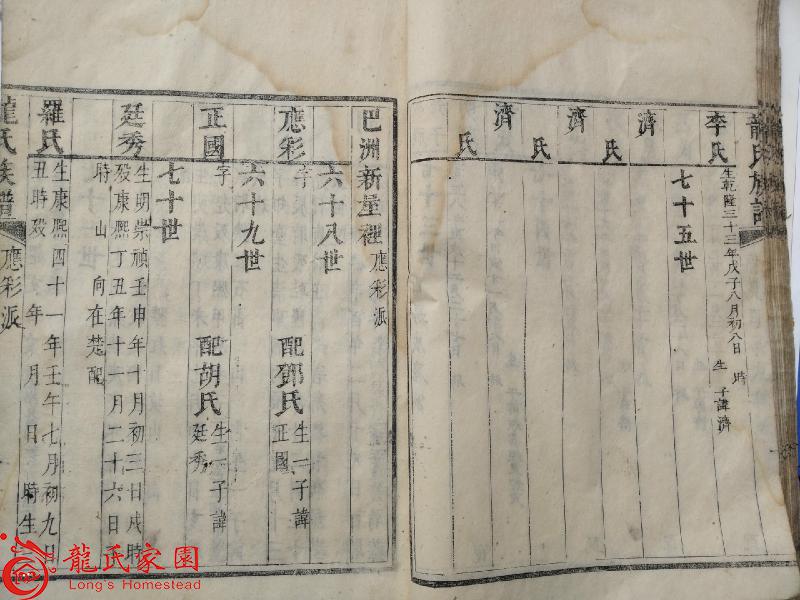 龍氏族譜
李氏 生乾隆三十三年戊子八月初八日 時
生 子諱濟
七十五世
濟
氏
濟
氏
濟
氏
巴洲新量裡應彩派
六十八世
應彩 字 配鄧氏 生一子諱
正國
六十九世
正國 字 配胡氏 生一子諱
廷秀
七十世
廷秀 生明崇禎壬申年十月初三日戌時
歿康熙丁丑年十一月二十六日
時 山 向在楚配
羅氏 生康熙四十一年壬午七月初九日
丑時歿 年 月 日 時生
龍氏族譜 應彩派
龍氏家園
Long's Homestead